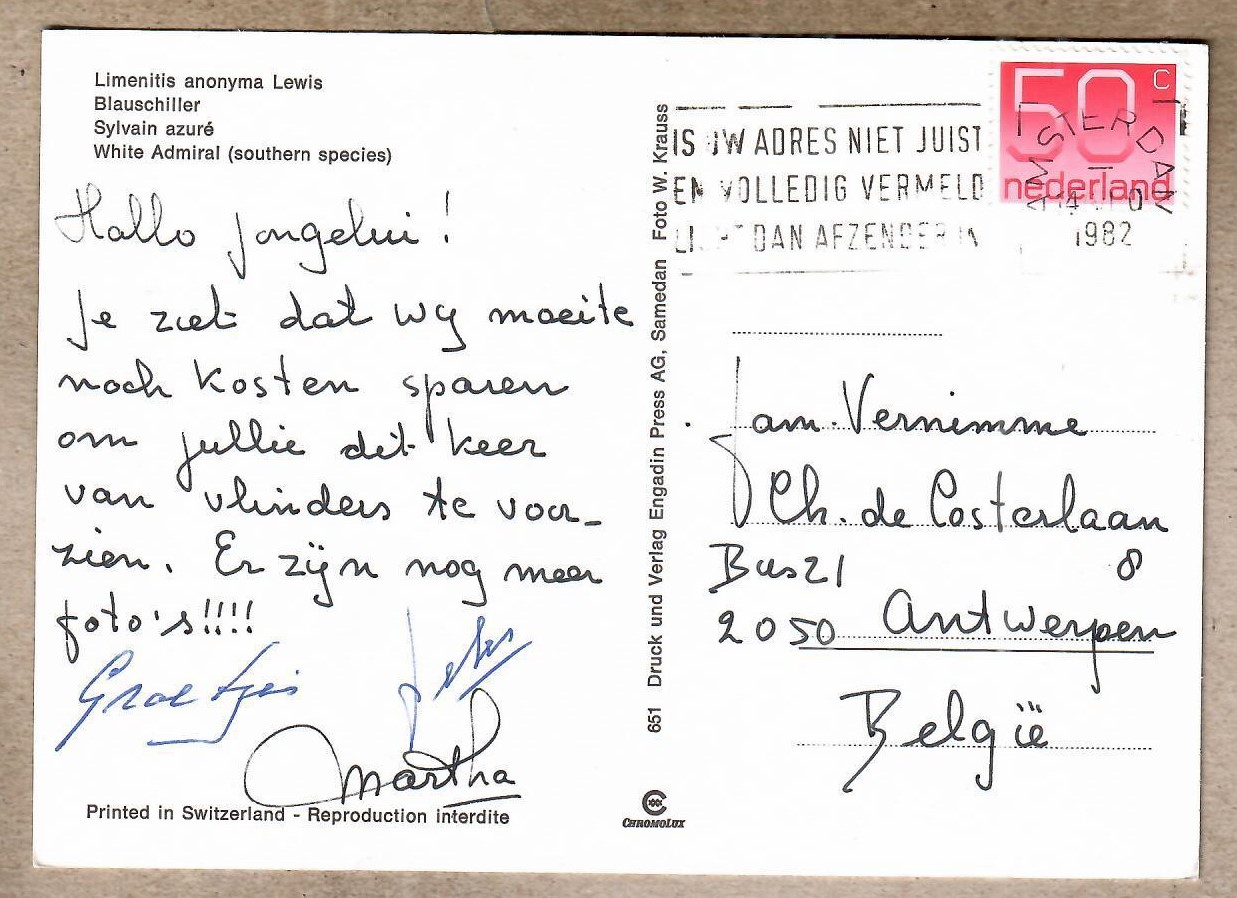 Limenitis anonyma Lewis
Blauschiller
Sylvain azuré
White Admiral (southern species)
Hallo jongelui !
Je ziet dat wy moeite
noch kosten sparen
om jullie dit keer
van vlinders te voor-
zien. Er zijn nog meer
foto's!!!!
Groetjes
Martha
Printed in Switzerland - Reproduction interdite
651 Druck und Verlag Engadin Press AG, Samedan Foto W. Krauss
CHROMOLUX
IS UW ADRES NIET JUIST
EN VOLLEDIG VERMELD
DAN AFZENDER IN
50 C
nederland
AMSTERDAM
1982
Fam. Vernimme
Ch. de Costerlaan
Bus 21 8
2050 Antwerpen
België